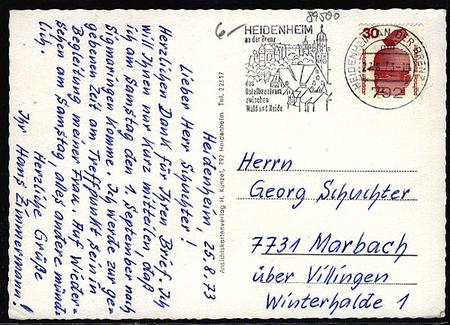 Heidenheim, 25.8.73
Lieber Herr Schuchter!
Herzlichen Dank für Ihren Brief. Ich
will Ihnen nur kurz mitteilen daß
ich am Samstag den 1. September nach
Sigmaringen komme. Ich werde zur ge-
gebenen Zeit am Treffpunkt sein in
Begleitung meiner Frau. Auf Wieder-
sehen am Samstag, alles andere münd-
lich
Herzliche Grüße
Ihr Hans Zimmermann!
Ansichtskartenverlag H. Künzel, 792 Heidenheim Tel. 22357
89500
6,-
HEIDENHEIM
an der Brenz
das
Ostalbzentrum
zwischen
Wald und Heide
HEIDENHEIM AN DER BRENZ
792
30
Herrn
Georg Schuchter
7731 Marbach
über Villingen
Winterhalde 1